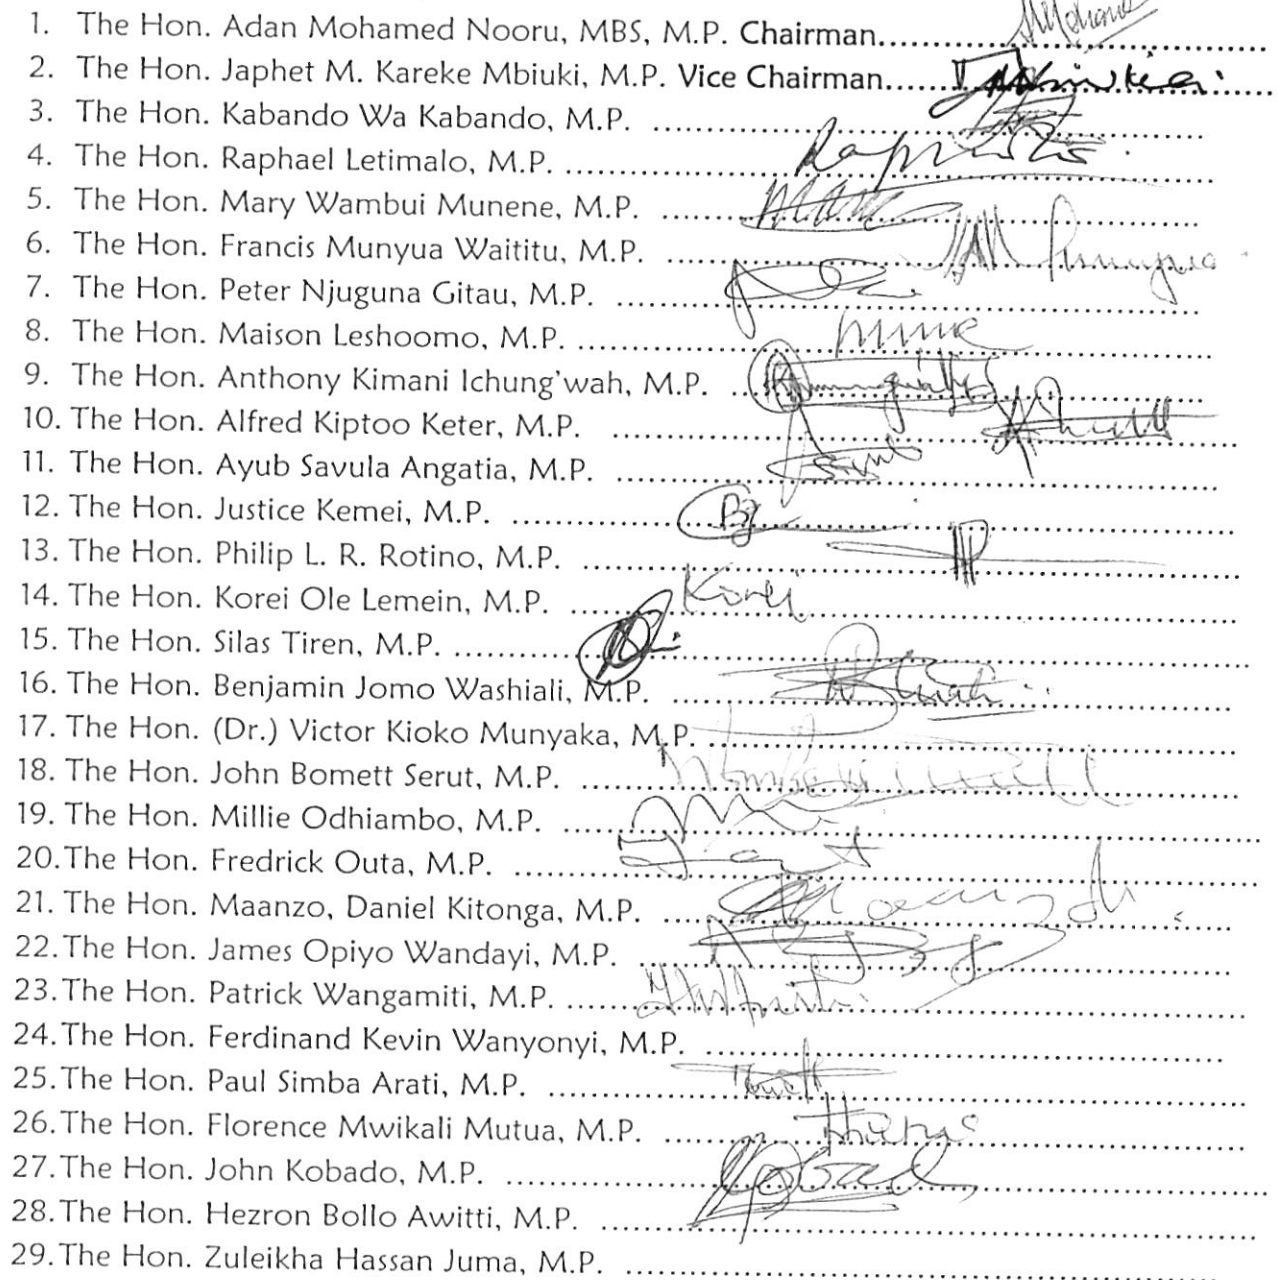 1. The Hon. Adan Mohamed Nooru, MBS, M.P. Chairman
2. The Hon. Japhet M. Kareke Mbiuki, M.P. Vice Chairman
3. The Hon. Kabando Wa Kabando, M.P.
4. The Hon. Raphael Letimalo, M.P.
5. The Hon. Mary Wambui Munene, M.P.
6. The Hon. Francis Munyua Waititu, M.P.
7. The Hon. Peter Njuguna Gitau, M.P.
8. The Hon. Maison Leshoomo, M.P.
9. The Hon. Anthony Kimani Ichung'wah, M.P.
10. The Hon. Alfred Kiptoo Keter, M.P.
11. The Hon. Ayub Savula Angatia, M.P.
12. The Hon. Justice Kemei, M.P.
13. The Hon. Philip L. R. Rotino, M.P.
14. The Hon. Korei Ole Lemein, M.P. Korei
15. The Hon. Silas Tiren, M.P.
16. The Hon. Benjamin Jomo Washiali, M.P.
17. The Hon. (Dr.) Victor Kioko Munyaka, M.P.
18. The Hon. John Bomett Serut, M.P.
19. The Hon. Millie Odhiambo, M.P.
20. The Hon. Fredrick Outa, M.P.
21. The Hon. Maanzo, Daniel Kitonga, M.P.
22. The Hon. James Opiyo Wandayi, M.P.
23. The Hon. Patrick Wangamiti, M.P.
24. The Hon. Ferdinand Kevin Wanyonyi, M.P.
25. The Hon. Paul Simba Arati, M.P.
26. The Hon. Florence Mwikali Mutua, M.P.
27. The Hon. John Kobado, M.P.
28. The Hon. Hezron Bollo Awitti, M.P.
29. The Hon. Zuleikha Hassan Juma, M.P.